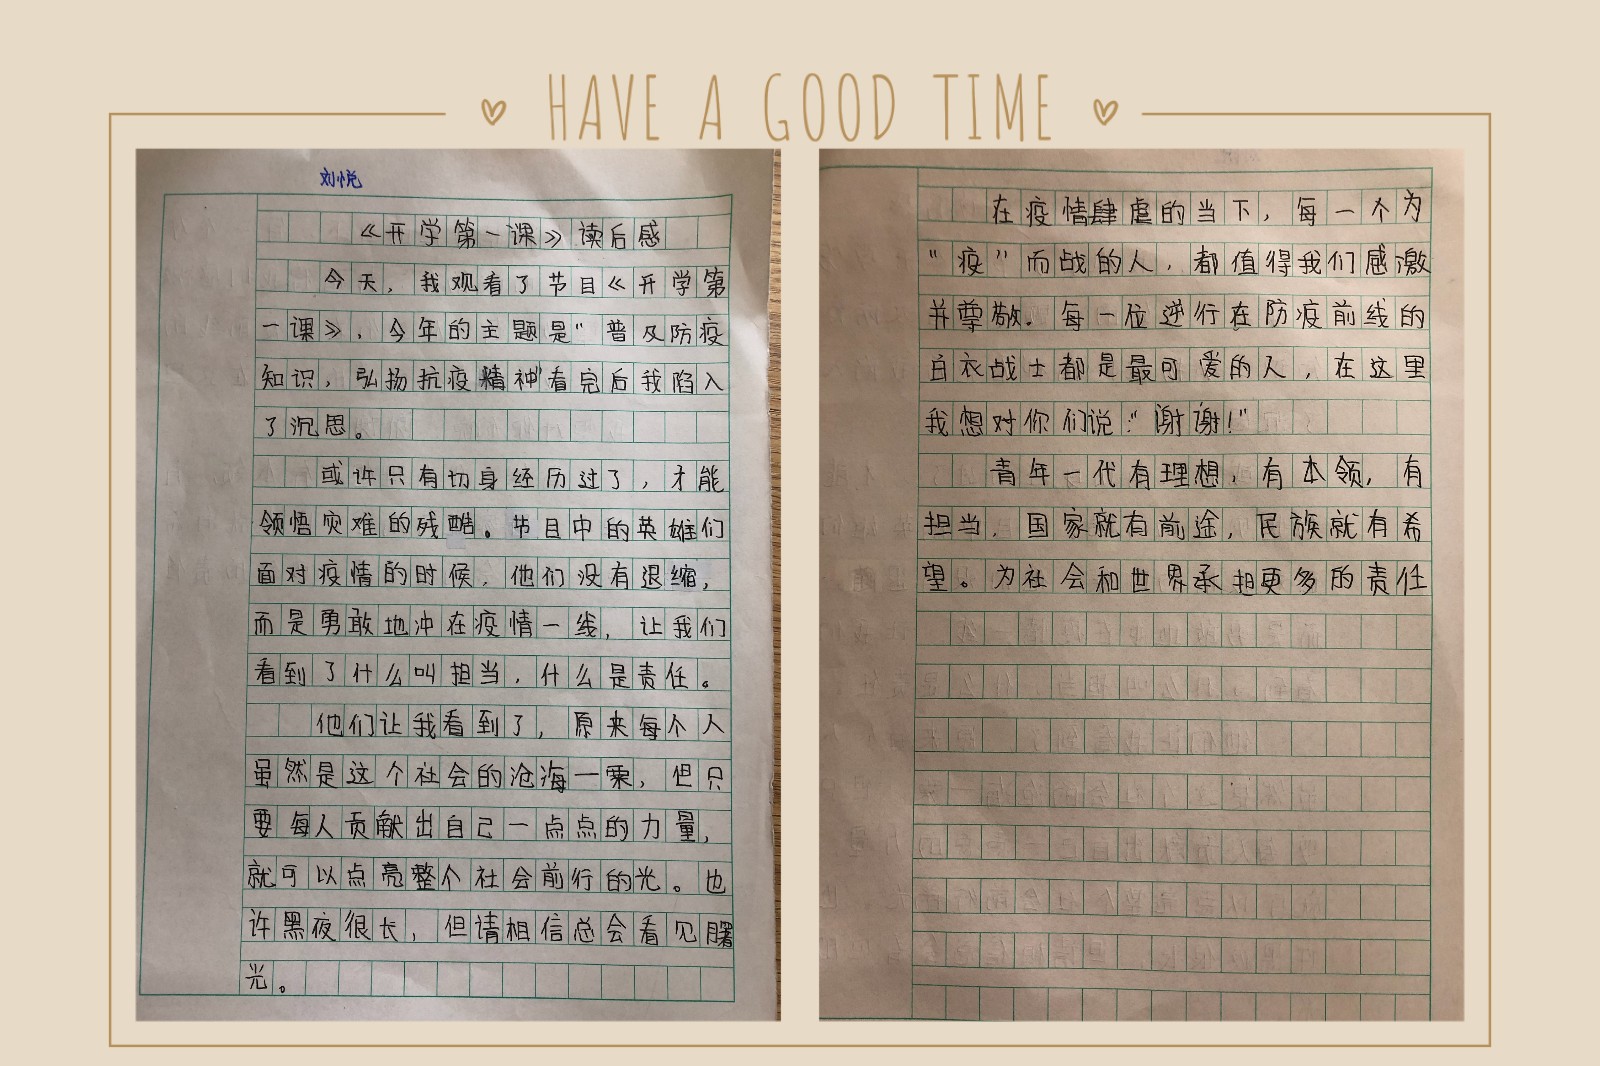 HAVE A GOOD TIME
刘悦
《开学第一课》读后感
今天，我观看了节目《开学第
一课》，今年的主题是“普及防疫
知识，弘扬抗疫精神”看完后我陷入
了沉思。
或许只有切身经历过了，才能
领悟灾难的残酷。节目中的英雄们
面对疫情的时候，他们没有退缩，
而是勇敢地冲在疫情一线，让我们
看到了什么叫担当，什么是责任。
他们让我看到了，原来每个人
虽然是这个社会的沧海一粟，但只
要每人贡献出自己一点点的力量，
就可以点亮整个社会前行的光。也
许黑夜很长，但请相信总会看见曙
光。
在疫情肆虐的当下，每一个为
“疫”而战的人，都值得我们感激
并尊敬。每一位逆行在防疫前线的
白衣战士都是最可爱的人，在这里
我想对你们说：“谢谢！”
青年一代有理想，有本领，有
担当，国家就有前途，民族就有希
望。为社会和世界承担更多的责任